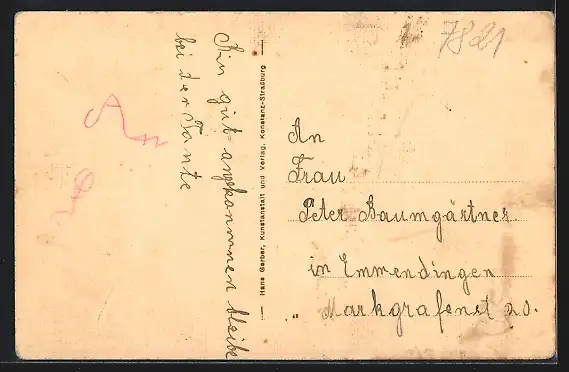 7821
Bin gut angekommen bleibe
bei der Tante
Hans Gerber, Kunstanstalt und Verlag, Konstanz-Straßburg
An
Frau
Peter Baumgärtner
in Emmendingen
" Markgrafenst 20.